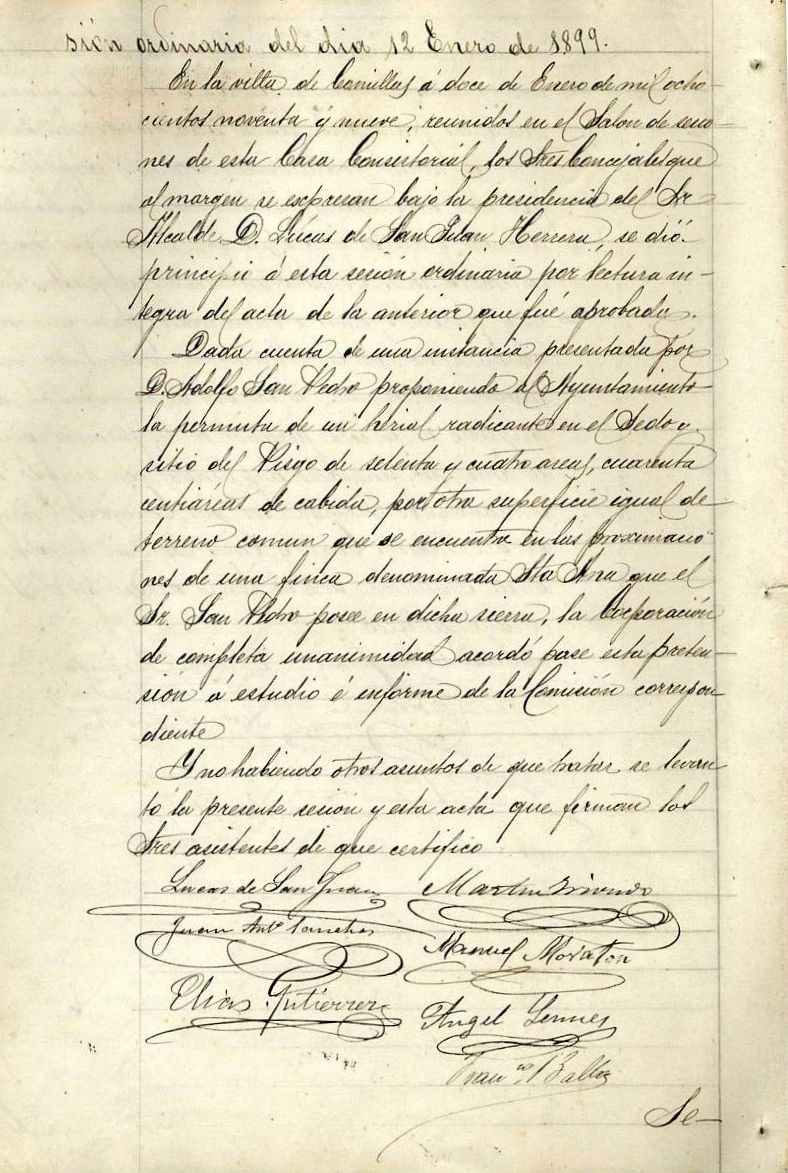 sión ordinaria del dia 12 Enero de 1899.
En la villa de Comillas á doce de Enero de mil ocho-
cientos noventa y nueve, reunidos en el Salon de sesio-
nes de esta Casa Consistorial, los Sres Concejales que
al margen se expresan bajo la presidencia del Sr
Alcalde D. Lúcas de San Juan Herrera, se dió
principio á esta sesión ordinaria por lectura in-
tegra del acta de la anterior que fué aprobada.
Dada cuenta de una instancia presentada por
D. Adolfo San Pedro proponiendo al Ayuntamiento
la permuta de un herial radicante en el
sitio del Pisgo de setenta y cuatro areas, cuarenta
centiáreas de cabida, por otra superficie igual de
terreno comun que se encuentra en las proximacio-
nes de una finca denominada Sta Ana que el
Sr. San Pedro posee en dicha sierra, la Corporación
de completa unanimidad acordó pase esta preten-
sión á estudio é informe de la Comisión correspon
diente
Y no habiendo otros asuntos de que tratar se levan
tó la presente sesión y esta acta que firman los
Sres asistentes de que certifico
Lucas de San Juan
Martin
Juan Antº Sanchez
Manuel Moraton
Elias Gutiérrez
Angel
Franco
Se-